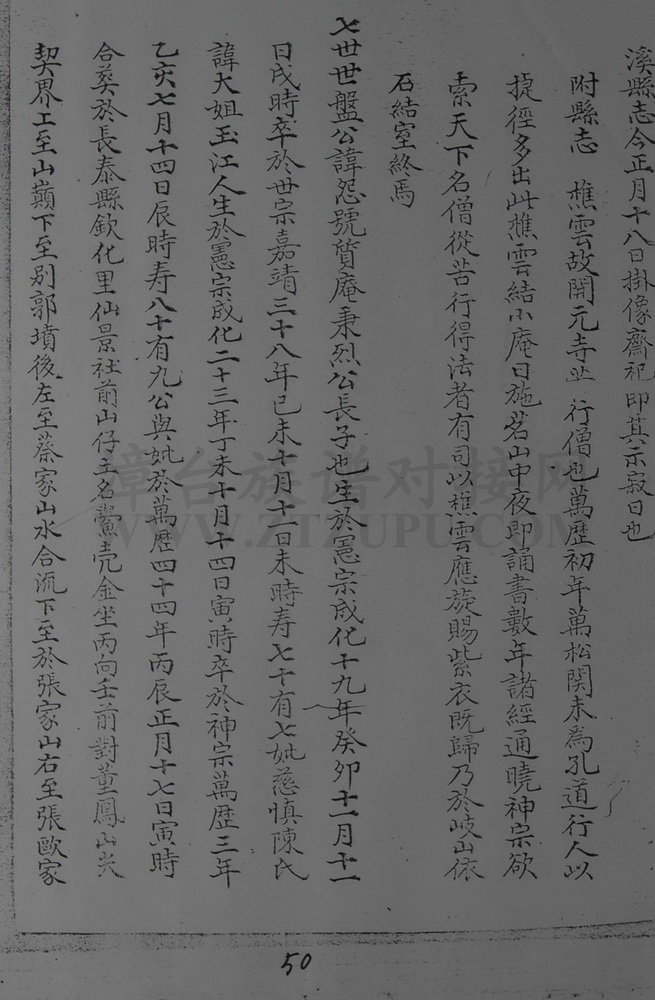 溪縣志今正月十八日掛像齋祀即其示寂日也
附縣志 樵雲故開元寺 行僧也萬歷初年萬松関未為孔道行人以
捷徑多出此樵雲結小庵日施茗山中夜即誦書數年諸經通曉神宗欲
索天下名僧從苦行得法者有司以樵雲應旋賜紫衣既歸乃於岐山依
石結室終焉
七世世盤公諱怨號質庵秉烈公長子也生於憲宗成化十九年癸卯十一月十一
日戌時卒於世宗嘉靖三十八年己未十月十二日未時寿七十有七妣慈慎陳氏
諱大姐玉江人生於憲宗成化二十三年丁未十月十四日寅時卒於神宗萬歷三年
乙亥七月十四日辰時寿八十有九公與妣於萬歷四十四年丙辰正月十七日寅時
合葬於長泰縣欽化里仙景社前山仔土名鱟壳金坐丙向壬前對董鳳山尖
契界上至山巔下至别郭墳後左至蔡家山水合流下至於張家山右至張歐家
50
漳台族谱对接网
WWW.ZTZUPU.COM